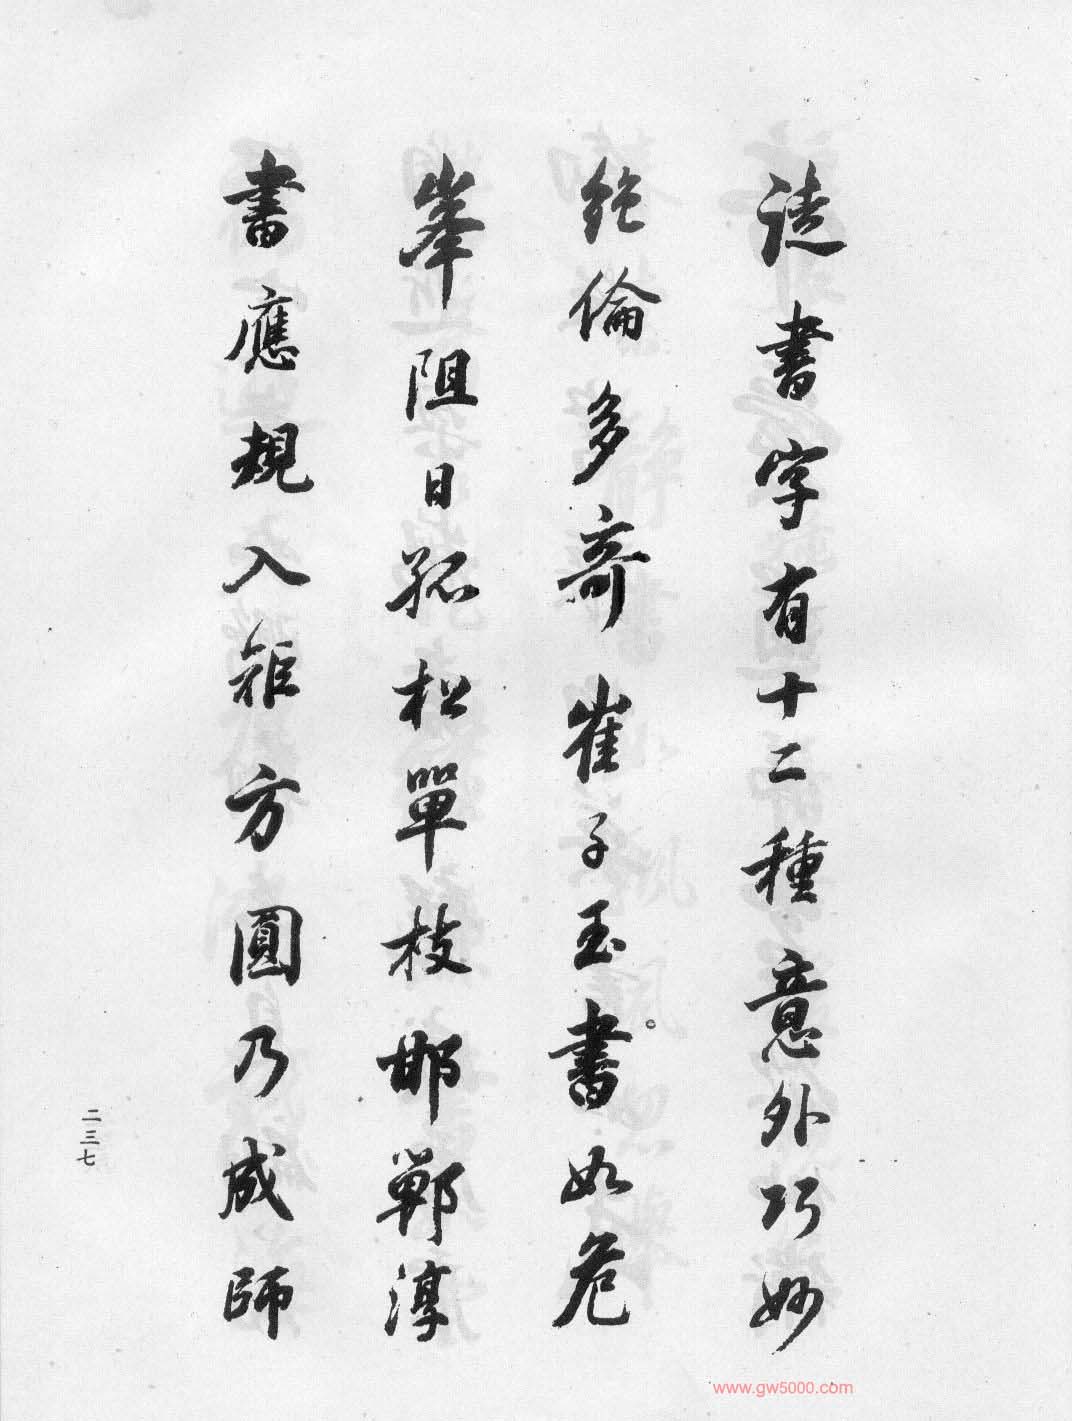 書字有十二種意外巧妙
絕倫多奇崔子玉書如危
峯阻日孤松單枝邯鄲淳
書應規入矩方圓乃成師
二三七
www.gw5000.com